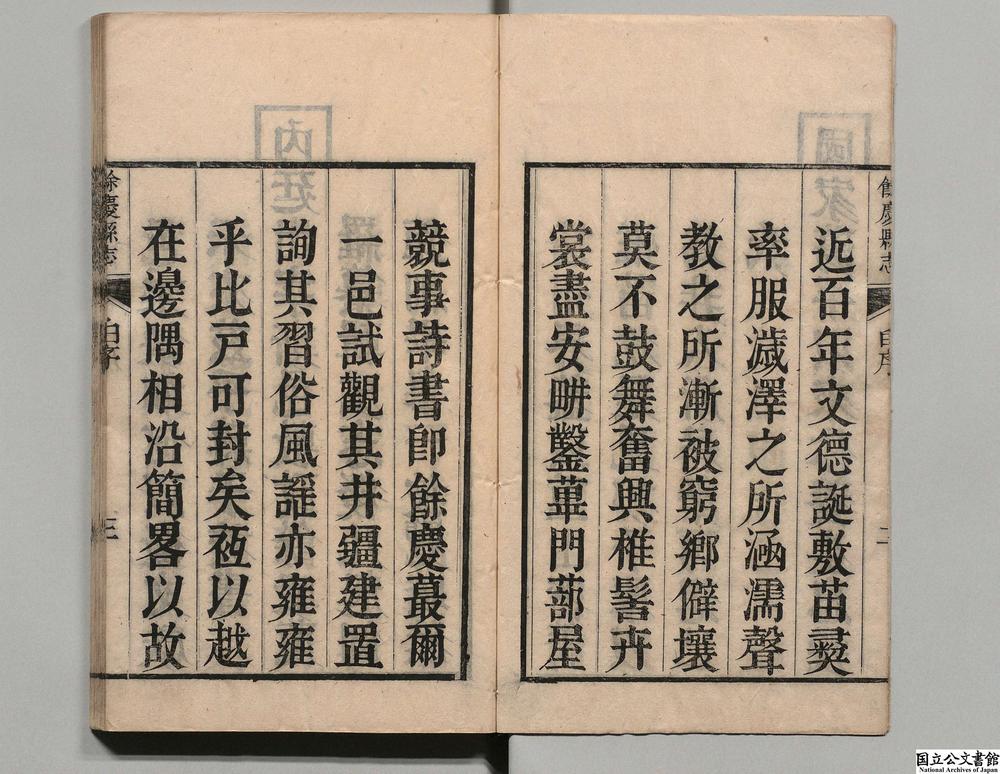 餘慶縣志
自序
二
近百年文德誕敷苗㸑
率服濊澤之所涵濡聲
教之所漸被窮鄉僻壤
莫不鼓舞奮興椎髻卉
裳盡安畊鑿蓽門蔀屋
競事詩書卽餘慶蕞爾
一邑試觀其井疆建置
詢其習俗風謡亦雍雍
乎比戸可封矣秪以越
在邊隅相沿簡畧以故
餘慶縣志
自序
三
国立公文書館
National Archives of Japan